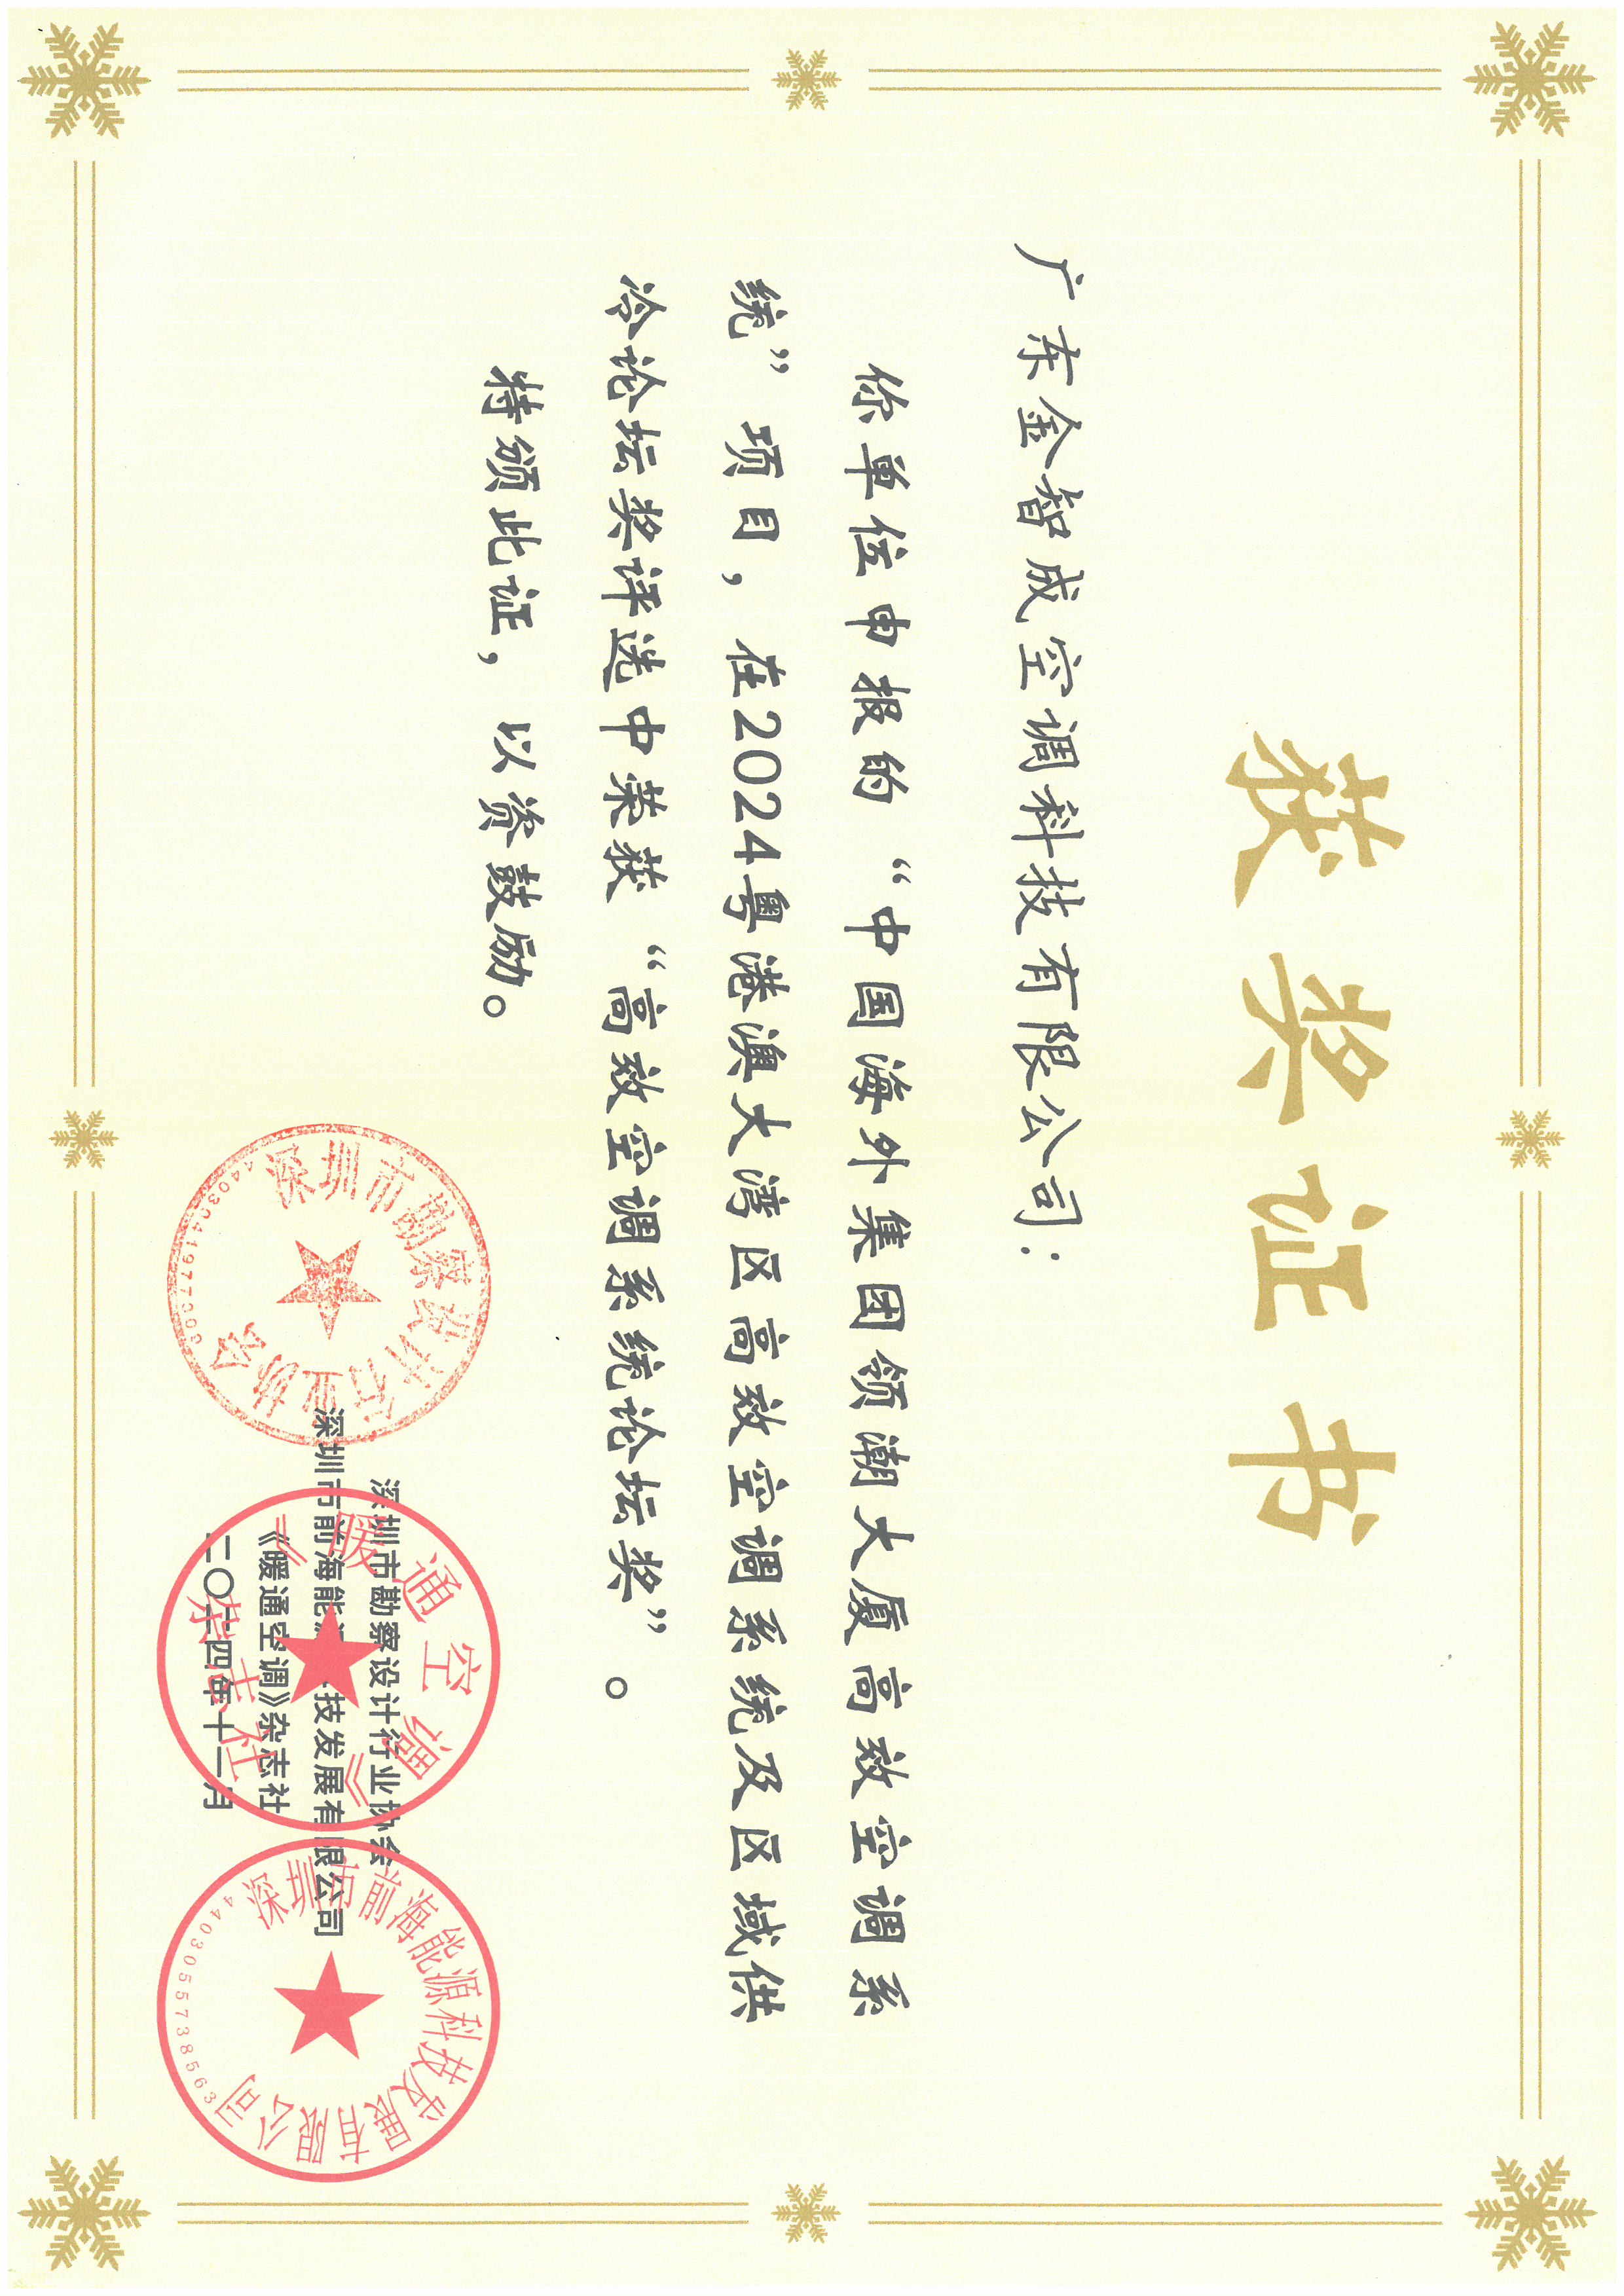 获奖证书
广东金智成空调科技有限公司：
你单位申报的“中国海外集团领潮大厦高效空调系
统”项目，在2024粤港澳大湾区高效空调系统及区域供
冷论坛奖评选中荣获“高效空调系统论坛奖”。
特颁此证，以资鼓励。
深圳市勘察设计行业协会
深圳市前海能源科技发展有限公司
《暖通空调》杂志社
二〇二四年十一月
深圳市勘察设计行业协会
《暖通空调》杂志社
深圳市前海能源科技发展有限公司
4403055738563